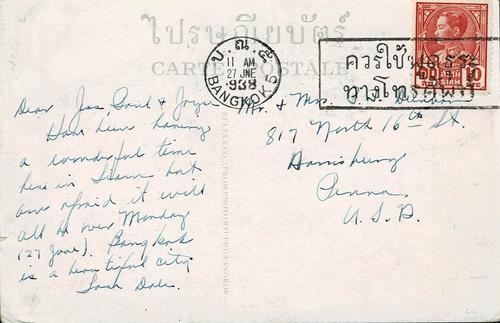 ไปรษณียบัตร
CARTE POSTALE
บ.ณ.๕
11 AM
27 JNE
938
BANGKOK 5
ควรใช้
ทางโทร
10
Dear Jas, & Joyce
Have been having
a wonderful time
here in Siam but
am afraid it will
all be over Monday
(27 June). Bangkok
is a beautiful city.
Dale.
Mr. & Mrs.
817 North 16th St.
Harrisburg
Penna
U.S.A.